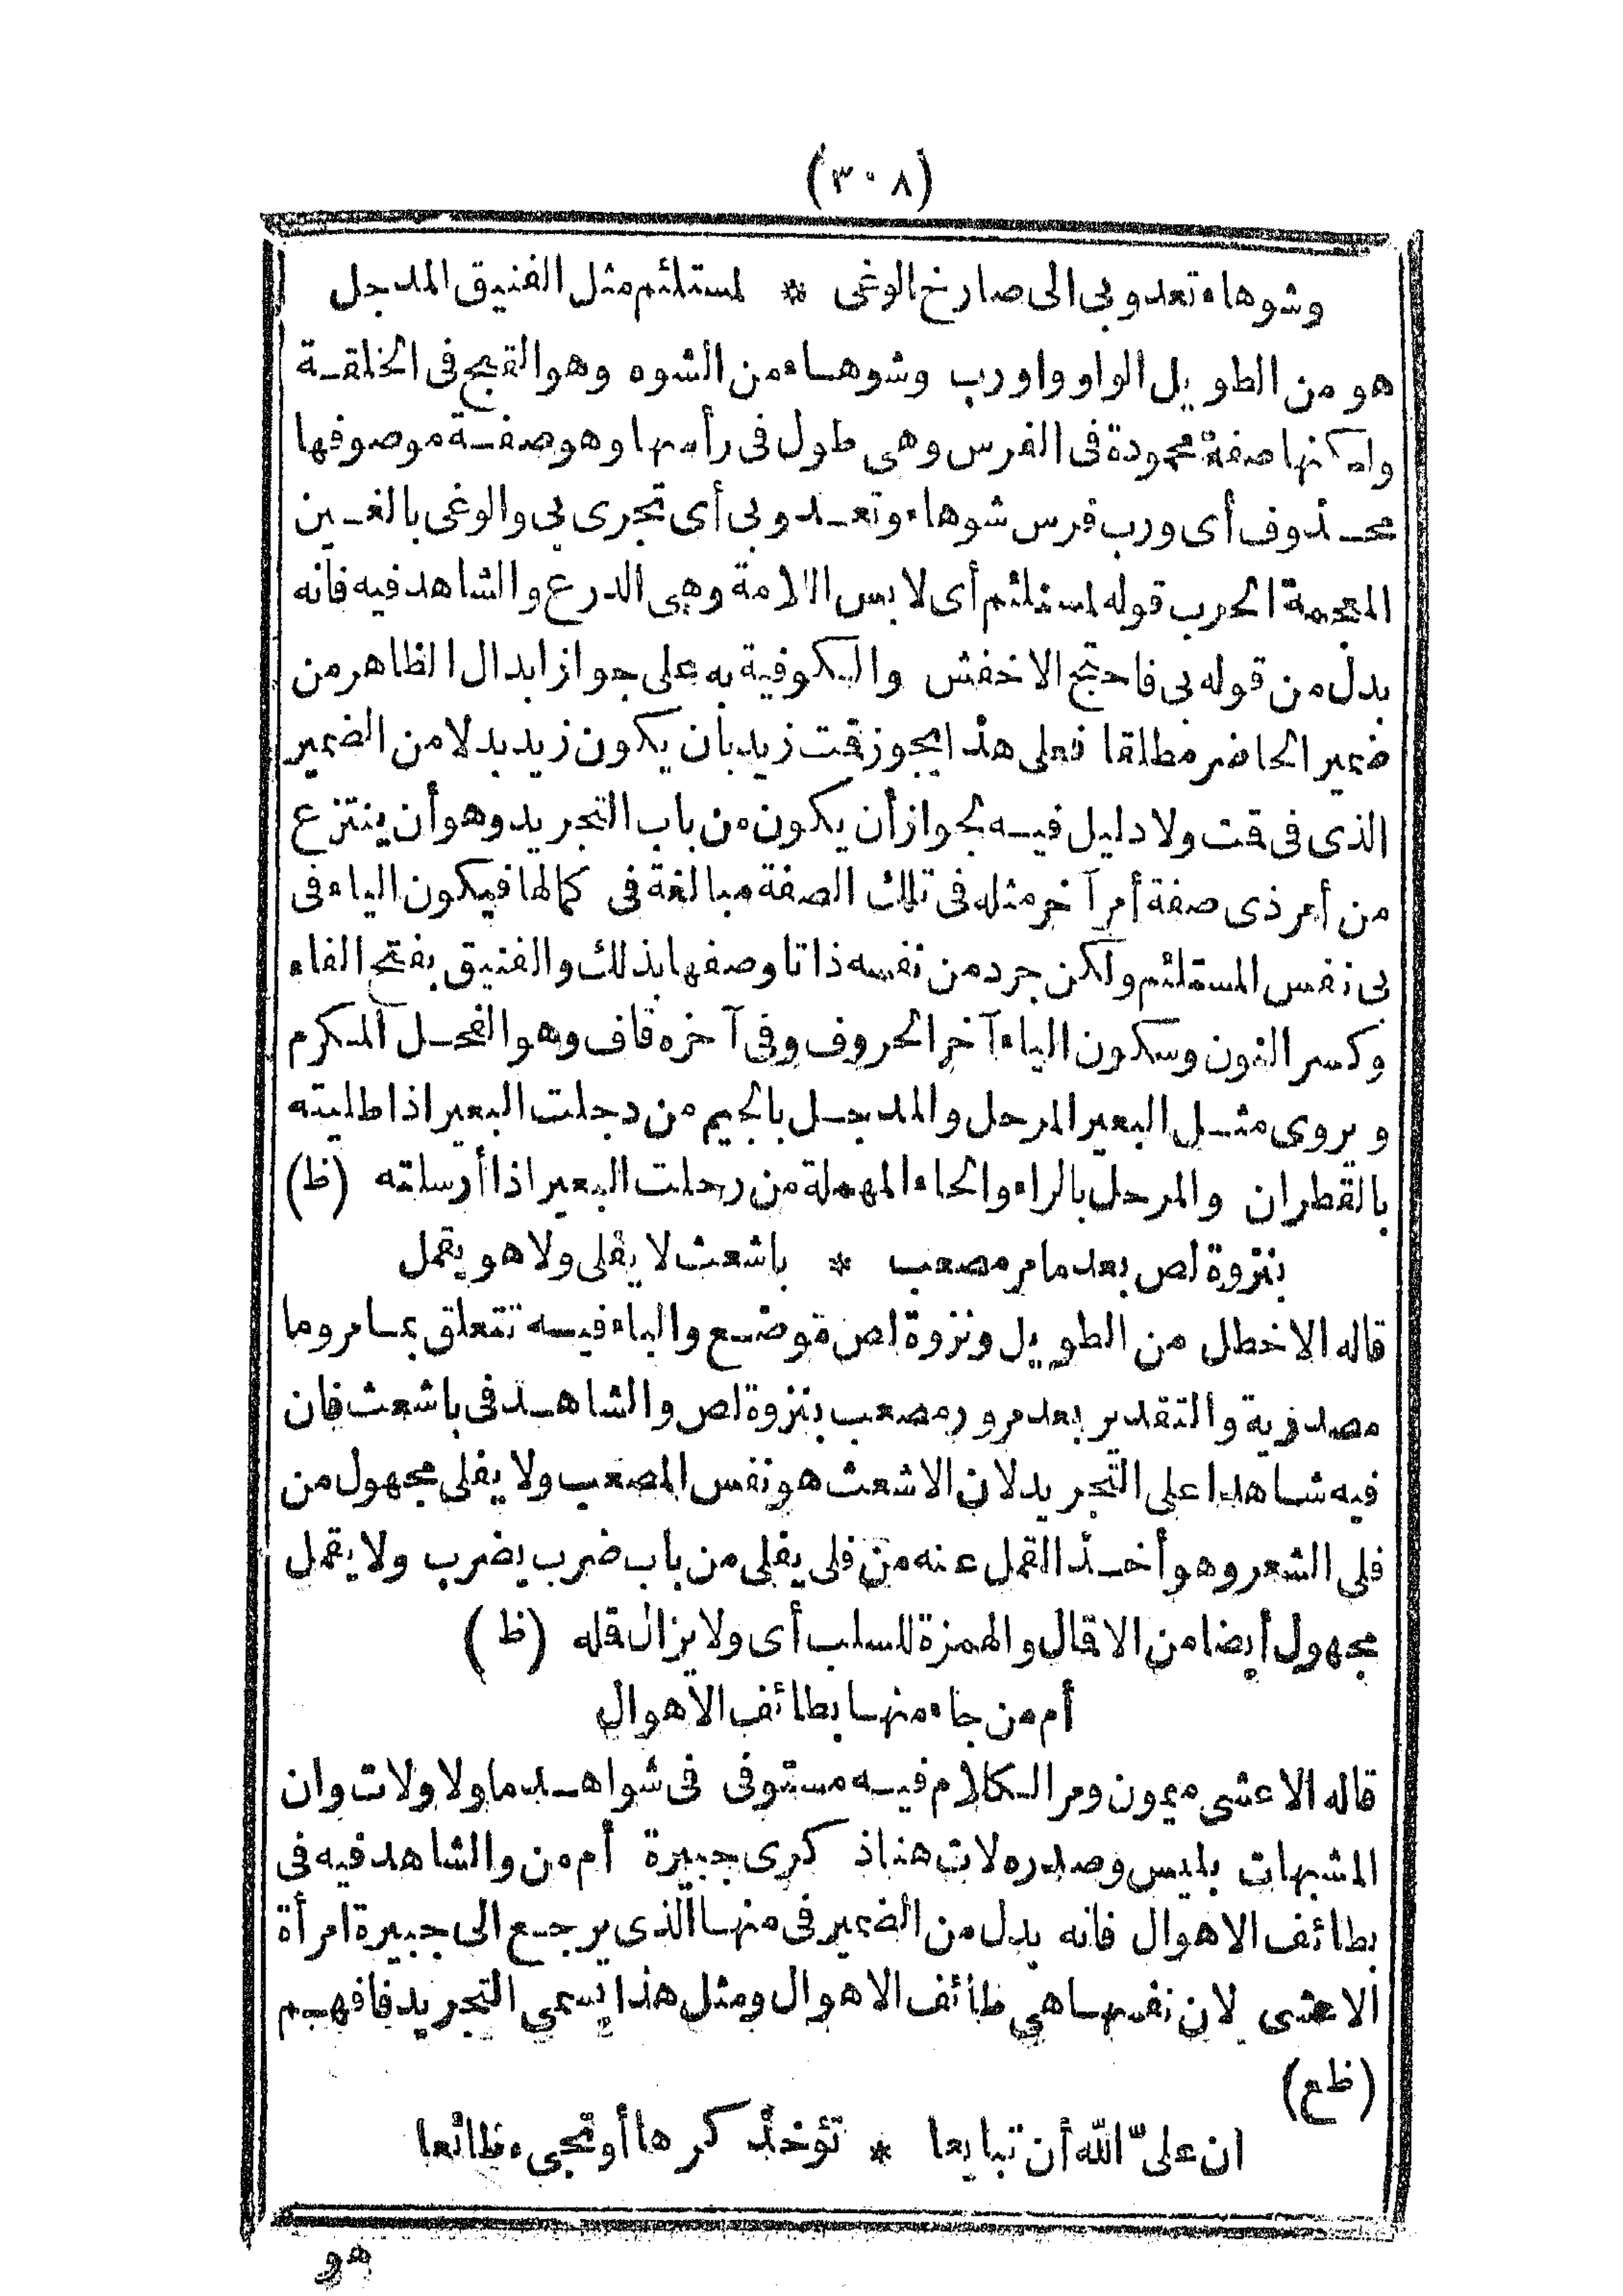 (٣٠٨)
وشوهاء تعدو بى الى صارخ الوغى * لمستلئم مثل الفنيق المدجل
هو من الطويل الواو واو رب وشوهاء من الشوه وهو القبح فى الخلقة
ولكنها صفة محمودة فى الفرس وهى طول فى رأسها وهو صفة موصوفها
محذوف أى ورب فرس شوهاء وتعدو بى أى تجرى بى والوغى بالغين
المعجمة الحرب قوله لمستلئم أى لابس اللامة وهى الدرع والشاهد فيه فانه
بدل من قوله بى فاحتج الاخفش والكوفية به على جواز ابدال الظاهر من
ضمير الحاضر مطلقا فعلى هذا يجوز قمت زيد بان يكون زيد بدلا من الضمير
الذى فى قمت ولا دليل فيه لجواز أن يكون من باب التجريد وهو أن ينتزع
من أمر ذى صفة أمر آخر مثله فى تلك الصفة مبالغة فى كمالها فيكون الياء فى
بى نفس المستلئم ولكن جرد من نفسه ذاتا وصفها بذلك والفنيق بفتح الفاء
وكسر النون وسكون الياء آخر الحروف وفى آخره قاف وهو الفحل المكرم
ويروى مثل البعير المرحل والمدجل بالجيم من دجلت البعير اذا طليته
بالقطران والمرحل بالراء والحاء المهملة من رحلت البعير اذا أرسلته (ظ)
بنزوة لص بعد ما مر مصعب * باشعث لا يفلى ولا هو يقمل
قاله الاخطل من الطويل ونزوة لص موضع والباء فيه تتعلق بمامر وما
مصدرية والتقدير بعد مرور مصعب بنزوة لص والشاهد فى باشعث فان
فيه شاهدا على التجريد لان الاشعث هو نفس المصعب ولا يفلى مجهول من
فلى الشعر وهو أخذ القمل عنه من فلى يفلى من باب ضرب يضرب ولا يقمل
مجهول أيضا من الاقمال والهمزة للسلب أى ولا يزال قمله (ظ)
أم من جاء منها بطائف الاهوال
قاله الاعشى ميمون ومر الكلام فيه مستوفى فى شواهد ما ولا ولات وان
المشبهات بليس وصدره لات هنا ذكرى جبيرة أم من والشاهد فيه فى
بطائف الاهوال فانه بدل من الضمير فى منها الذى يرجع الى جبيرة امرأة
الاعشى لان نفسها هى طائف الاهوال ومثل هذا يسمى التجريد فافهم
(ظع)
ان علىّ الله أن تبايعا * تؤخذ كرها أو تجىء طائعا
هو